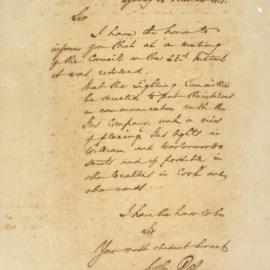 Sir
I have the honor to
inform you that at a meeting
of the Council on the 23rd Instant
it was resolved
that the Lighting Committee
be directed to put themselves
in communication with the
Gas Company, with a view
of placing Gas Lights in
William and Woolloomooloo
Streets and if possible in
other localities in Cook and
other wards.
I have the honor to be
Sir
Your most obedient Servant